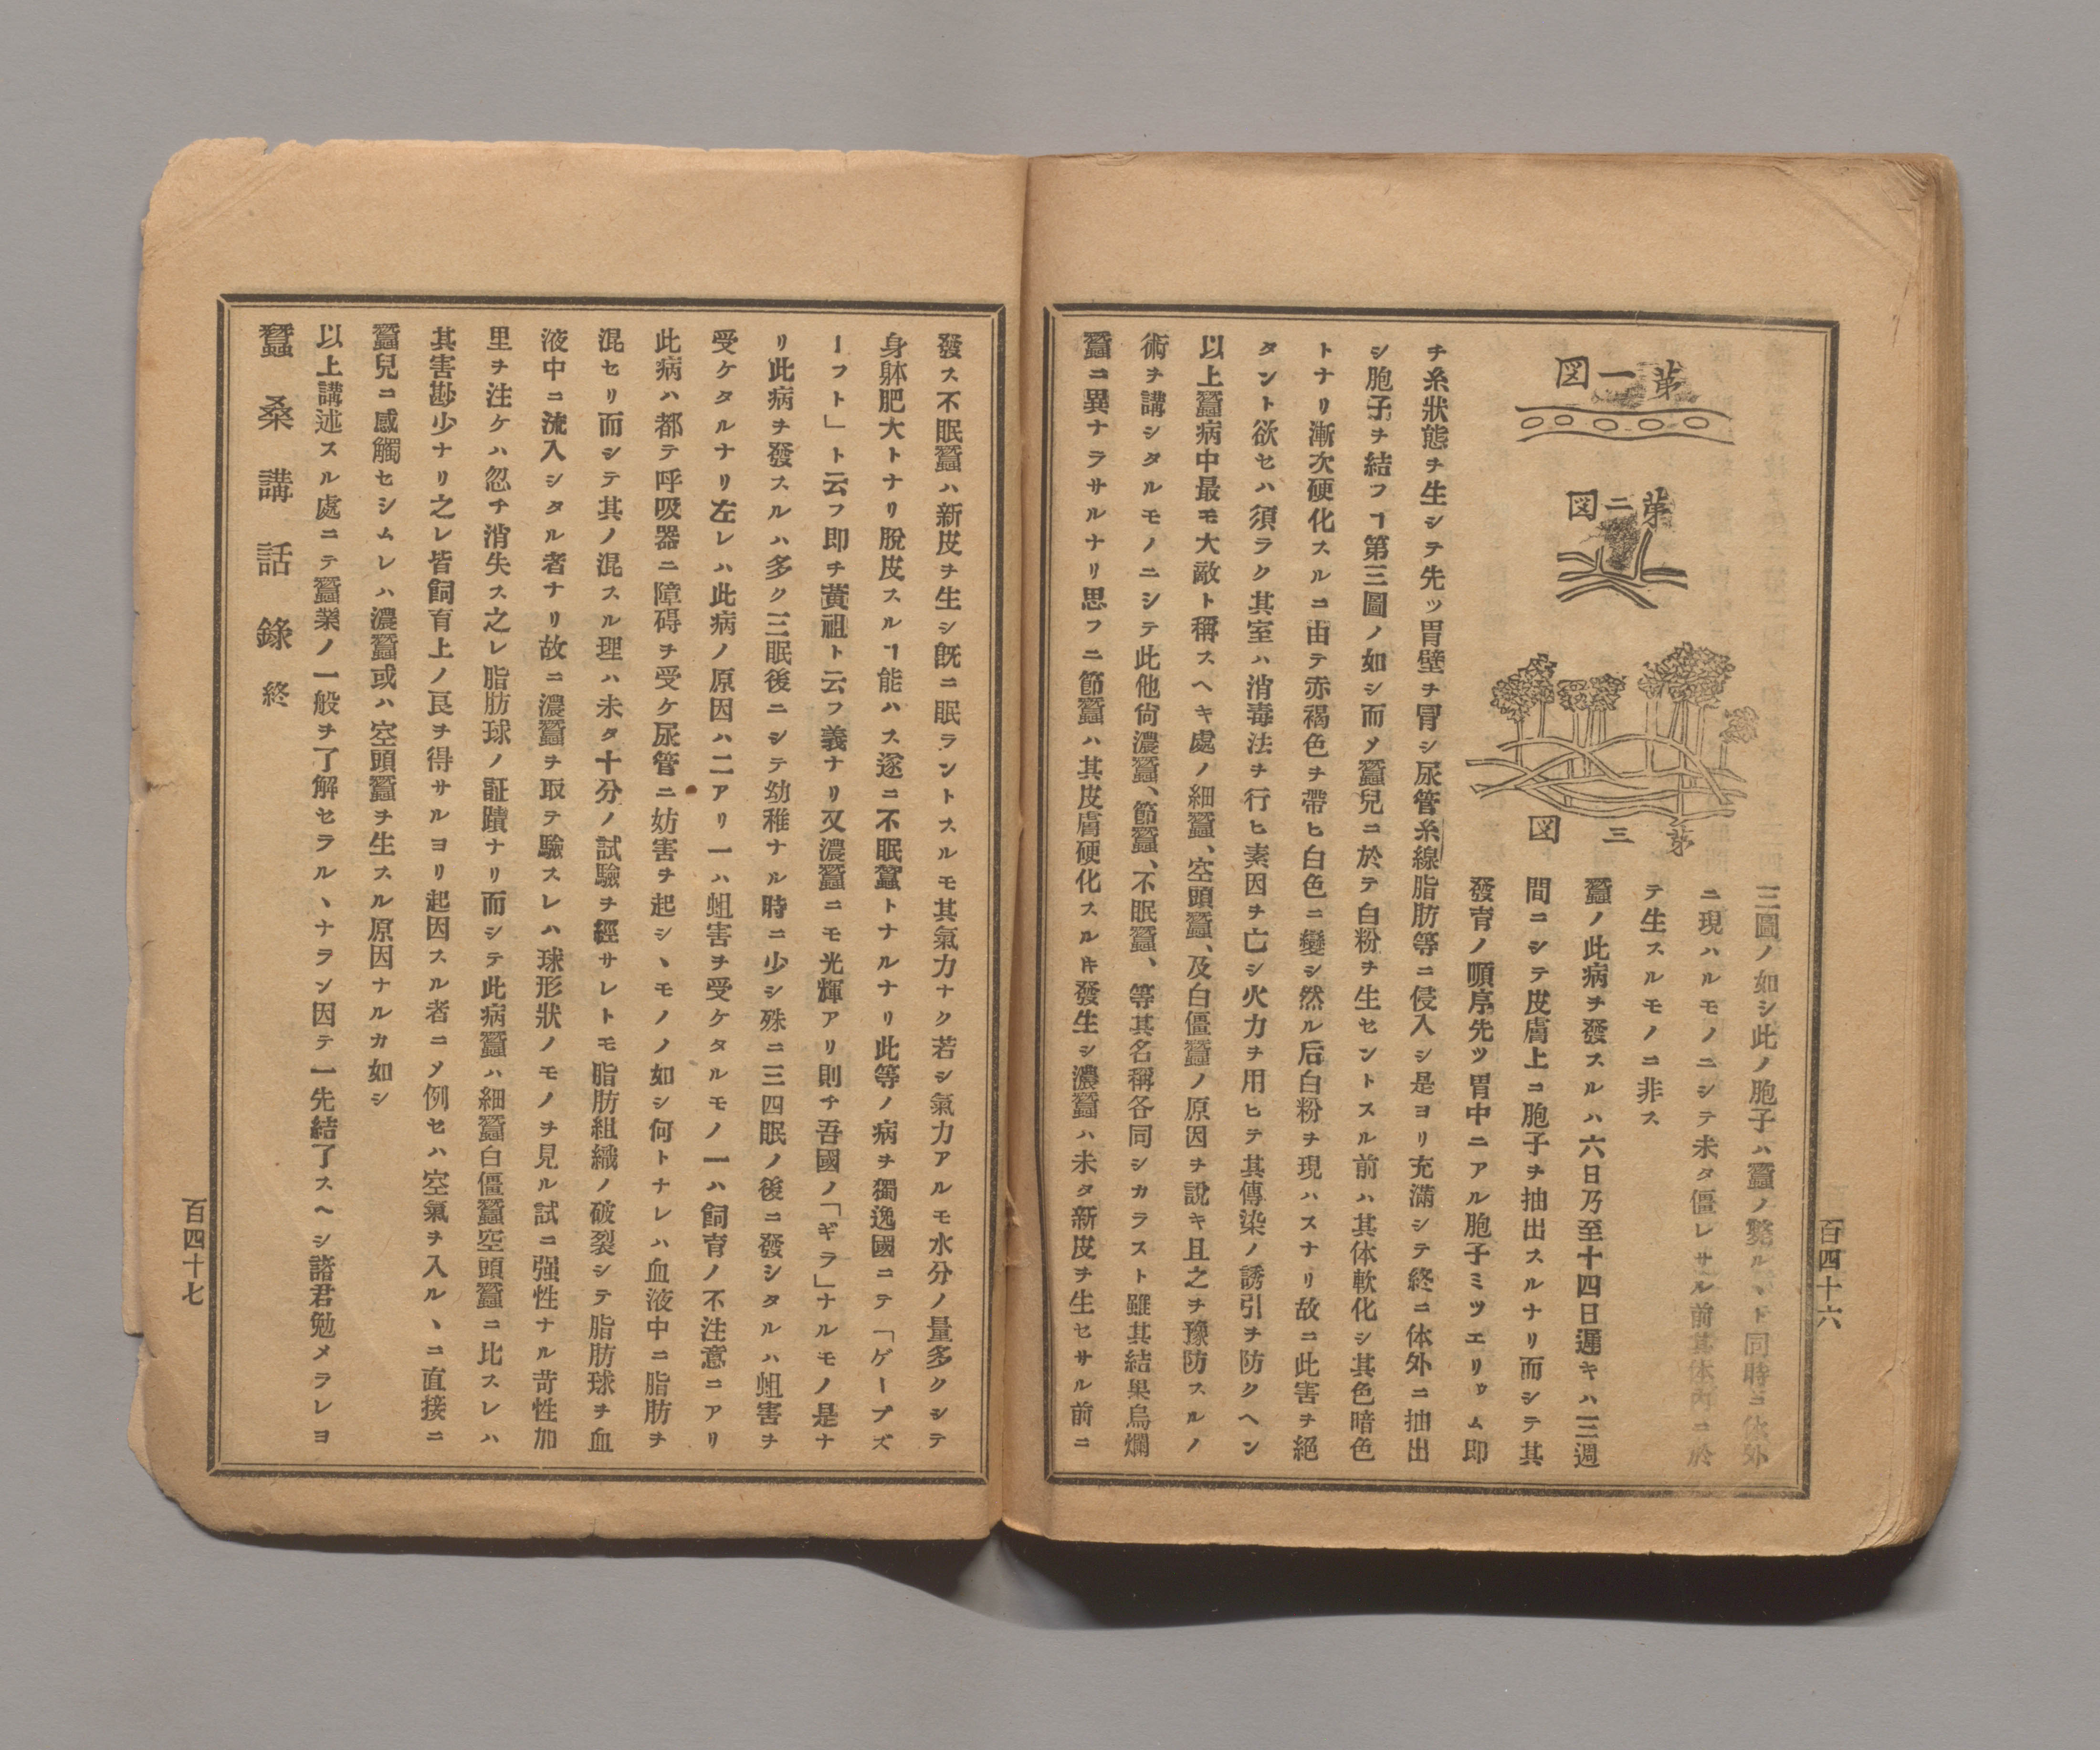 第一図
第二図
第三図
三圖ノ如シ此ノ胞子ハ蠶ノ斃ルヽト同時ニ体外
ニ現ハルモノニシテ未タ僵レサル前其体内ニ於
テ生スルモノニ非ス
蠶ノ此病ヲ發スルハ六日乃至十四日遲キハ三週
間ニシテ皮膚上ニ胞子ヲ抽出スルナリ而シテ其
發育ノ順序先ツ胃中ニアル胞子ミツエリウム即
チ糸狀態ヲ生シテ先ッ胃壁ヲ冐シ尿管糸線脂肪等ニ侵入シ是ヨリ充滿シテ終ニ体外ニ抽出
シ胞子ヲ結フヿ第三圖ノ如シ而〆蠶兒ニ於テ白粉ヲ生セントスル前ハ其体軟化シ其色暗色
トナリ漸次硬化スルニ由テ赤褐色ヲ帶ヒ白色ニ變シ然ル后白粉ヲ現ハスナリ故ニ此害ヲ絕
タント欲セハ須ラク其室ハ消毒法ヲ行ヒ素因ヲ亡シ火力ヲ用ヒテ其傳染ノ誘引ヲ防クヘン
以上蠶病中最モ大敵ト稱スヘキ處ノ細蠶、空頭蠶、及白僵蠶ノ原因ヲ說キ且之ヲ豫防スルノ
術ヲ講シタルモノニシテ此他尙濃蠶、節蠶、不眠蠶、等其名稱各同シカラスト雖其結果烏爛
蠶ニ異ナラサルナリ思フニ節蠶ハ其皮膚硬化スルㇳキ發生シ濃蠶ハ未タ新皮ヲ生セサル前ニ
百四十六
發ス不眠蠶ハ新皮ヲ生シ旣ニ眠ラントスルモ其氣力ナク若シ氣力アルモ水分ノ量多クシテ
身躰肥大トナリ脫皮スルヿ能ハス逐ニ不眠蠶トナルナリ此等ノ病ヲ獨逸國ニテ「ゲープズ
ーフト」ト云フ即チ黃祖ト云フ義ナリ又濃蠶ニモ光輝アリ則チ吾國ノ「ギラ」ナルモノ是ナ
リ此病ヲ發スルハ多ク三眠後ニシテ幼稚ナル時ニ少シ殊ニ三四眠ノ後ニ發シタルハ蛆害ヲ
受ケタルナリ左レハ此病ノ原因ハ二アリ一ハ蛆害ヲ受ケタルモノ一ハ飼育ノ不注意ニアリ
此病ハ都テ呼吸器ニ障碍ヲ受ケ尿管ニ妨害ヲ起シヽモノノ如シ何トナレハ血液中ニ脂肪ヲ
混セリ而シテ其ノ混スル理ハ未タ十分ノ試驗ヲ經サレトモ脂肪組織ノ破裂シテ脂肪球ヲ血
液中ニ流入シタル者ナリ故ニ濃蠶ヲ取テ驗スレハ球形狀ノモノヲ見ル試ニ强性ナル苛性加
里ヲ注ケハ忽チ消失ス之レ脂肪球ノ証蹟ナリ而シテ此病蠶ハ細蠶白僵蠶空頭蠶ニ比スレハ
其害尠少ナリ之レ皆飼育上ノ良ヲ得サルヨリ起因スル者ニ〆例セハ空氣ヲ入ルヽニ直接ニ
蠶兒ニ感觸セシムレハ濃蠶或ハ空頭蠶ヲ生スル原因ナルカ如シ
以上講述スル處ニテ蠶業ノ一般ヲ了解セラルヽナラン因テ一先結了スヘシ諮君勉メラレヨ
蠶桑講話錄終
百四十七